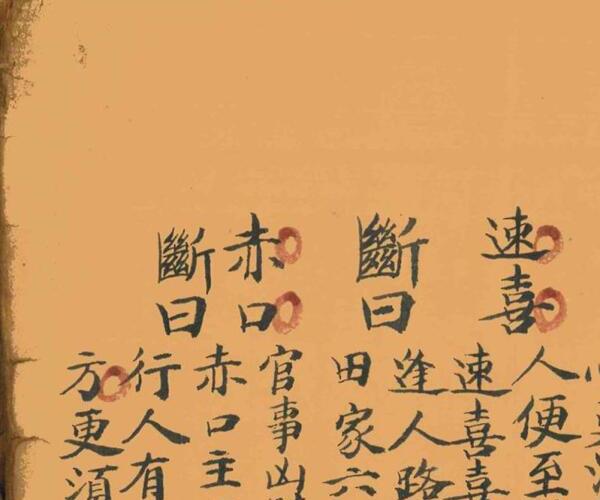 人便至
速喜
斷曰
速喜喜
逢人路
田家六
官事凶
赤口
斷曰
赤口主
行人有
方更須